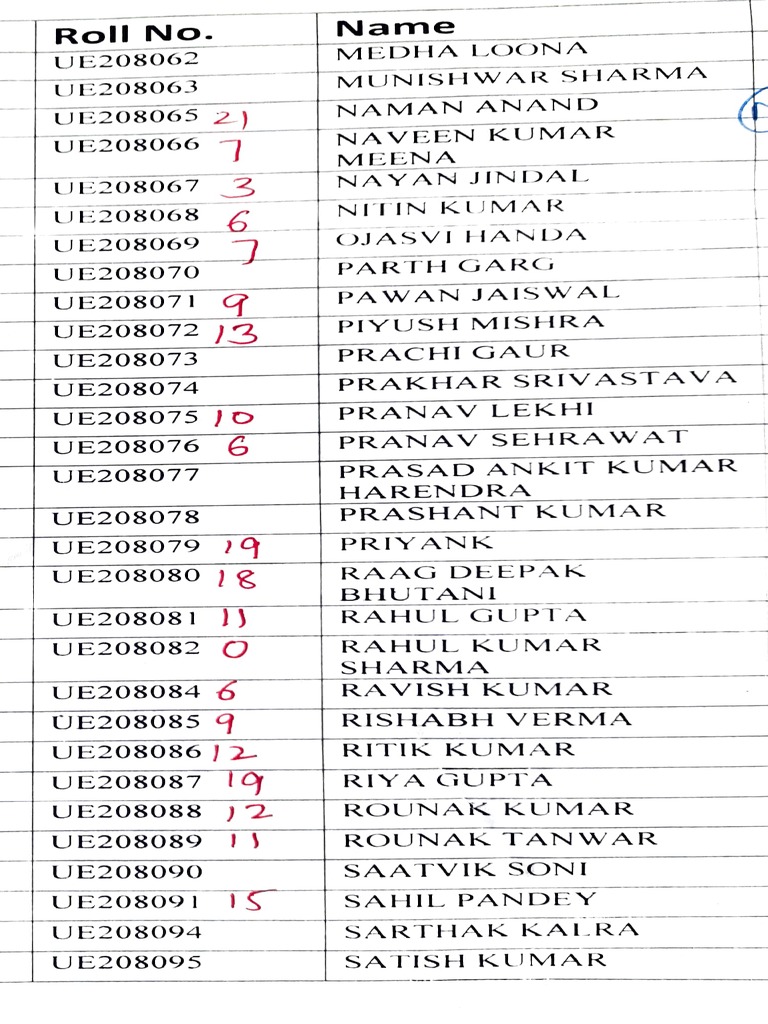 Roll No. Name
UE208062 MEDHA LOONA
UE208063 MUNISHWAR SHARMA
UE208065 21 NAMAN ANAND
UE208066 7 NAVEEN KUMAR
MEENA
UE208067 3 NAYAN JINDAL
UE208068 6 NITIN KUMAR
UE208069 7 OJASVI HANDA
UE208070 PARTH GARG
UE208071 9 PAWAN JAISWAL
UE208072 13 PIYUSH MISHRA
UE208073 PRACHI GAUR
UE208074 PRAKHAR SRIVASTAVA
UE208075 10 PRANAV LEKHI
UE208076 6 PRANAV SEHRAWAT
UE208077 PRASAD ANKIT KUMAR
HARENDRA
UE208078 PRASHANT KUMAR
UE208079 19 PRIYANK
UE208080 18 RAAG DEEPAK
BHUTANI
UE208081 11 RAHUL GUPTA
UE208082 0 RAHUL KUMAR
SHARMA
UE208084 6 RAVISH KUMAR
UE208085 9 RISHABH VERMA
UE208086 12 RITIK KUMAR
UE208087 19 RIYA GUPTA
UE208088 12 ROUNAK KUMAR
UE208089 11 ROUNAK TANWAR
UE208090 SAATVIK SONI
UE208091 15 SAHIL PANDEY
UE208094 SARTHAK KALRA
UE208095 SATISH KUMAR